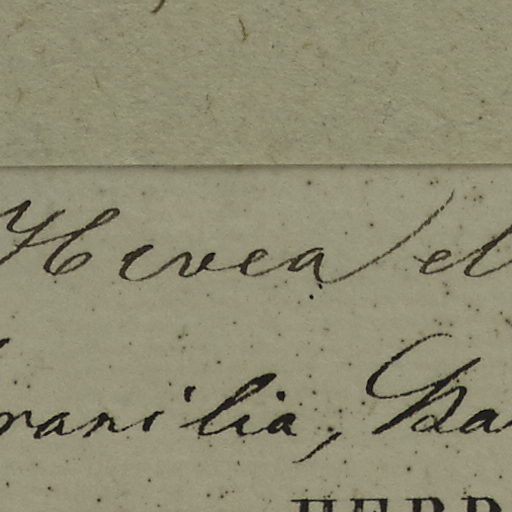 Hevea el
rasilia, Ba
HERB